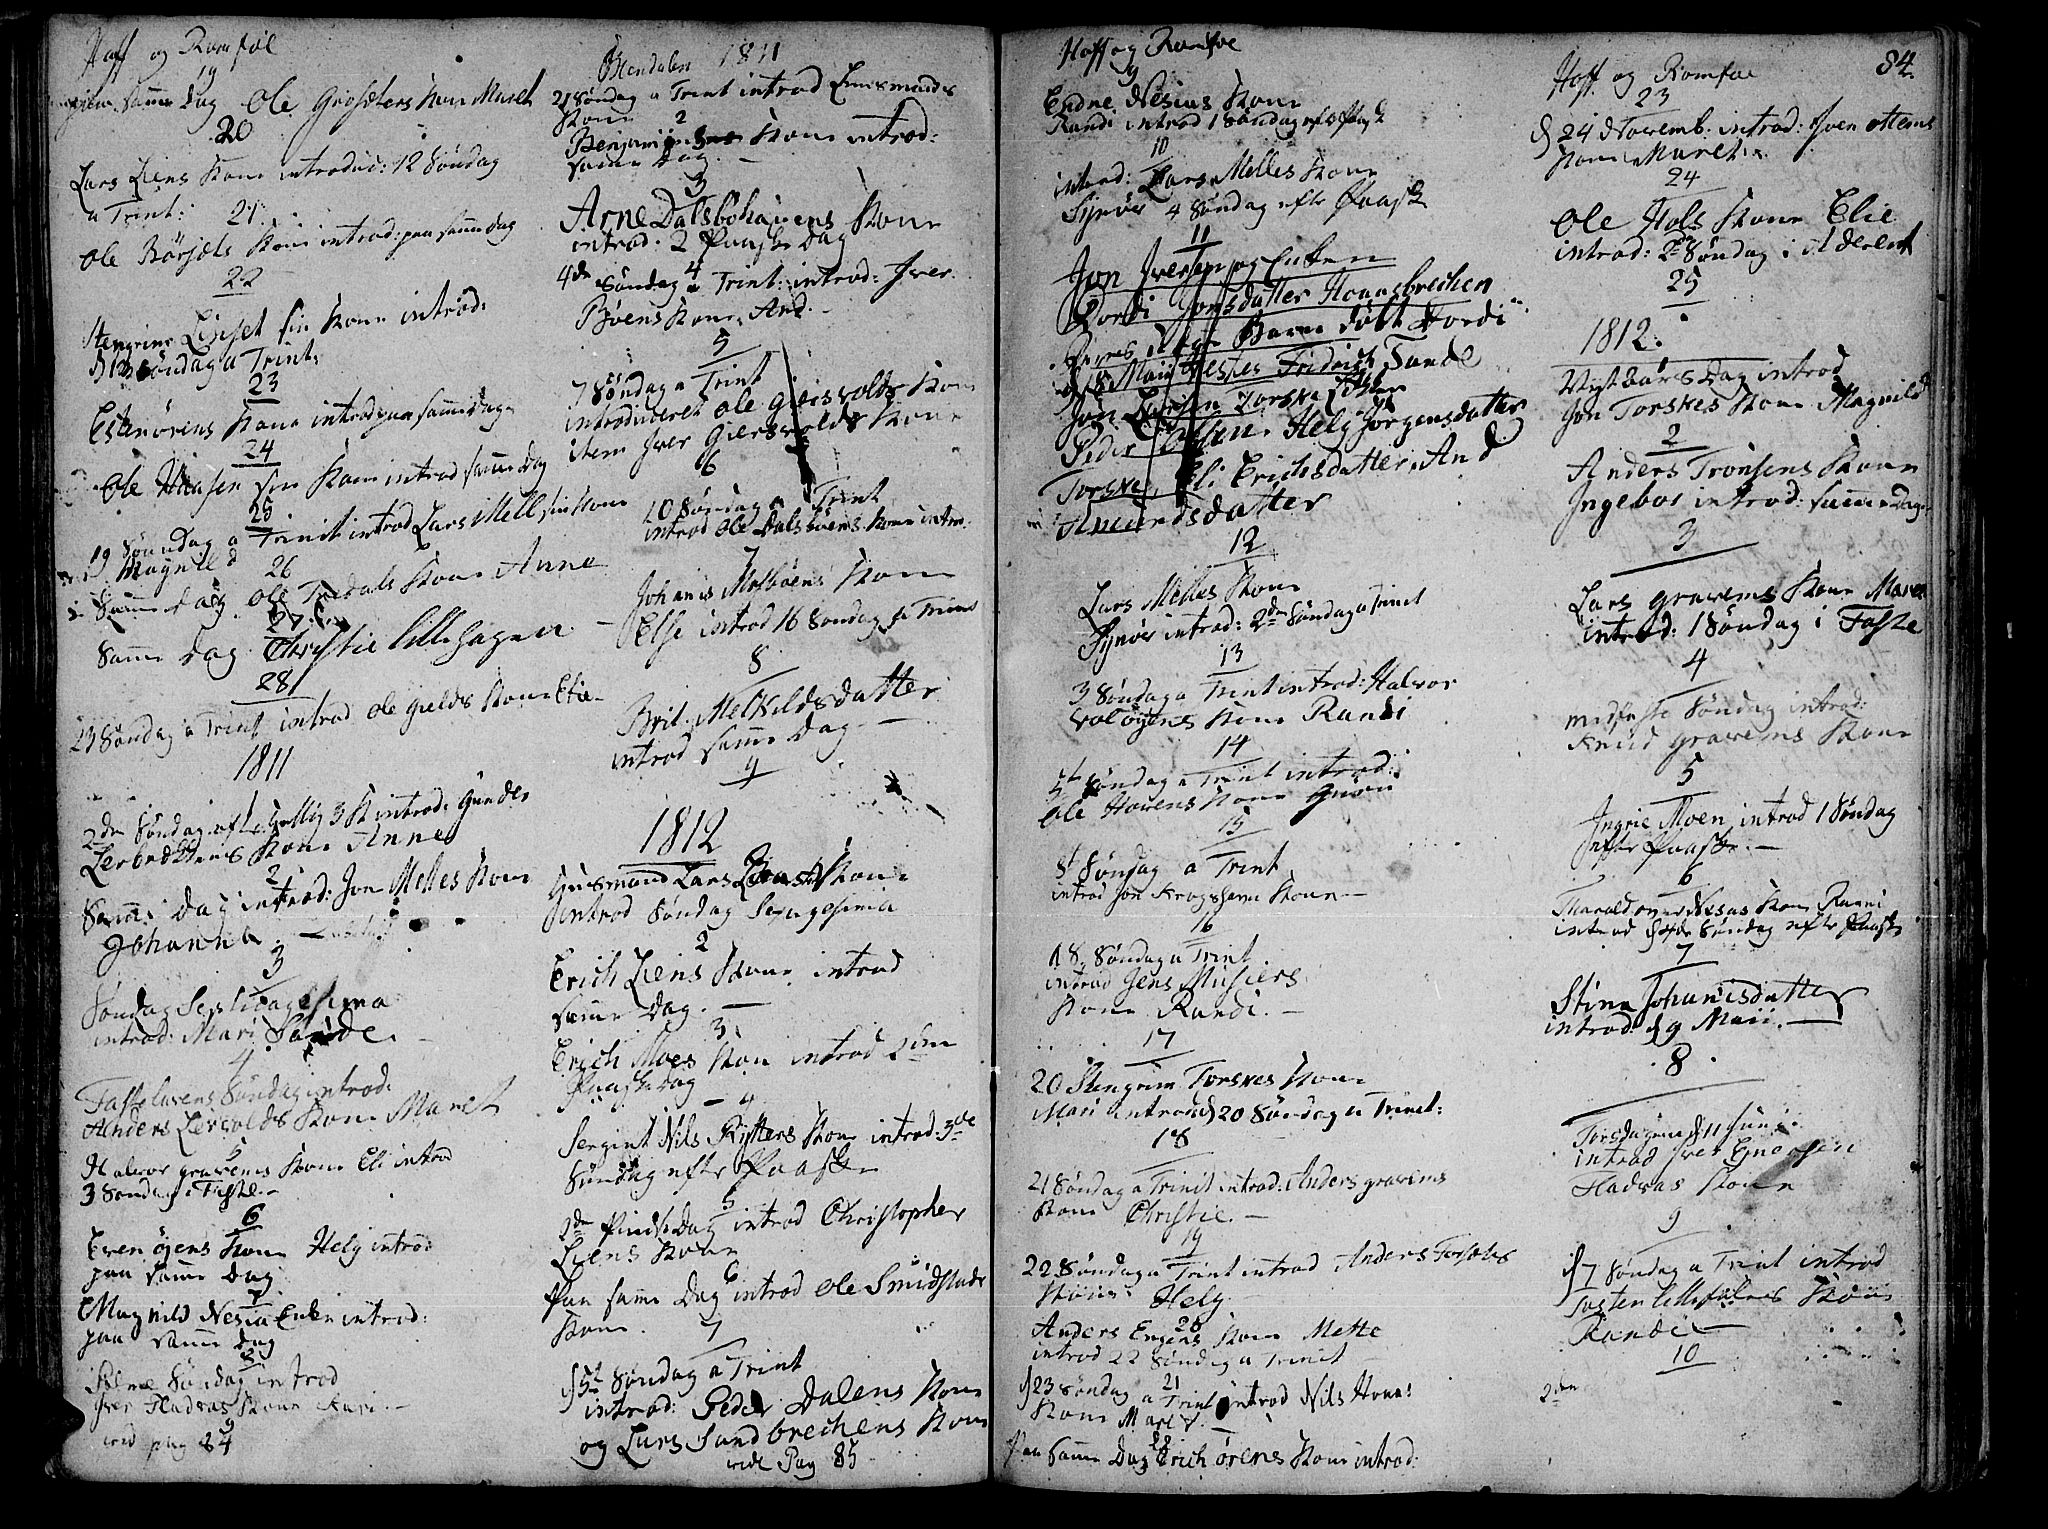 Hoff og Romfoe
19
samme Dag Ole Grosæters Kone Maret
20
Lars Liens Kone introduc: 12 Søndag
a Trint:
21
Ole Børsæts Kone introd: paa samme dag
22
Stengrim Liøset sin Kone introd:
d 13 Søndag a Trint:
23
Estenørens Kone introd paa samme dag
24
Ole Hansen sin Kone introd samme dag
25
19 Søndag a Trinit introd Lars Mell sin Kone
Magnild
26
Samme dag Ole Tredals Kone Anne
27
Samme Dag Christie Lillehagen
28
23 Søndag a Trint introd Ole Gields Kone Elie
1811
2den Søndag efter Hellig 3 K introd: Gunder
Kone Anne
2
Samme Dag introd: Jon Melles Kone
Johanna
3
Søndag Septuagesima
introd: Mari Sande.
4
Fastelavens Søndag introd:
Anders Leervolds Kone Maret
5
Halvor Gravems Kone Eli introd
3 Søndag i Faste
6
Even Øyens Kone Helg introd
paa samme Dag
7
Magnild Nesia Enke introd:
paa samme Dag
8
Palme Søndag introd
Iver Hadvas Kone Kari.
9
vid pag 84
Blendalen 1811
21 Søndag a Trint introd
Kone
2
Benjamin Kone introd:
samme Dag.
3
Arne Dalsbøhagens Kone
introd. 2 Paaske Dag
4
4de Søndag a Trint: introd: Iver
Bøens Kone And.
5
7 Søndag a Trint
introduceret Ole Giersvolds Kone
item Iver Giersvolds Kone
6
10 Søndag a Trint
introd Ole Dalsbøens Kone
7
Johanis Melbøens Kone
Else introd 16 Søndag a Trint
8
Brit Metkildsdatter
introd samme Dag
9
1812
Huusmand Lars Kone
introd Søndag Sexagesima
2
Erich Liens Kone introd
samme Dag.
3
Erich Moes Kone introd 2den
Paaske Dag
4
Sergent Nils Rytters Kone introd: 3de
Søndag efter Paaske
5
2den Pindse Dag introd Christopher
Liens Kone
6
Paa samme Dag introd Ole Smidstads
Kone.
7
d 5t Søndag a Trint
introd: Peder Dalens Kone
og Lars Sandbrechens Kone
vide Pag 85
Hoff og Romfoe
9
Endre Nesius Kone
Randi introd 1 Søndag efter Paask
10
introd: Lars Melles Kone
Synøv 4 Søndag efter Paask
11
Jon Iversen og Enken
Dordi Jonsdatter Hoaasbrechen
Barn døbt Dordi
Maii Testes Fridrich Sande
Jon Torske
Peder Olsen Helg Jørgensdatter
Torske, Eli Erichsdatter, And
Amundsdatter
12
Lars Melles Kone
Synøv introd: 2den Søndag a Trinit
13
3 Søndag a Trint introd: Halvor
Voløyens Kone Randi
14
5t Søndag a Trint introd:
Ole Hovens Kone
15
8t Søndag a Trint
introd Jon Krogshavn Kone
16
18 Søndag a Trint
introd Jens Musiers
Kone Randi.
17
20 Stengrim Torskes Kone
Mari introd d 20 Søndag a Trinit:
18
21 Søndag a Trinit introd: Anders Gravems
Kone Christie.
19
22 Søndag a Trint introd Anders Forsæts
Kone: Helg
20
Anders Engens Kone Mette
introd 22 Søndag a Trinit
21
d 23 Søndag a Trint introd Nils Hovens
Kone Maret.
22
Paa samme Dag Erich Ørens Kone introd:
84.
Hoff og Romfoe
23
d 24 Novemb. introd: Iven Ottems
Kone Maret.
24
Ole Hols Kone Elie
introd: 2den Søndag i Advent
25
1812.
Nytaars Dag introd
Jon Torskes Kone Magnild
2
Anders Tronsens Kone
Ingebor introd: samme Dag
3
Lars Gravems Kone Maren
introd: 1 Søndag i Faste
4
midfaste Søndag introd:
Knud Gravems Kone
5
Ingrie Moen introd 1 Søndag
efter Paaske.
6
Harald Nesas Kone Ranni
introd Søndag efter Paaske
7
Stina Johanisdatter
introd: d 9 Maii.
8
Torsdagen d 11 Junii.
introd Iver Enersen
Hadvas Kone
9
d 7 Søndag a Trint introd
Tosten Lillefales Kone
Randi
10
2den